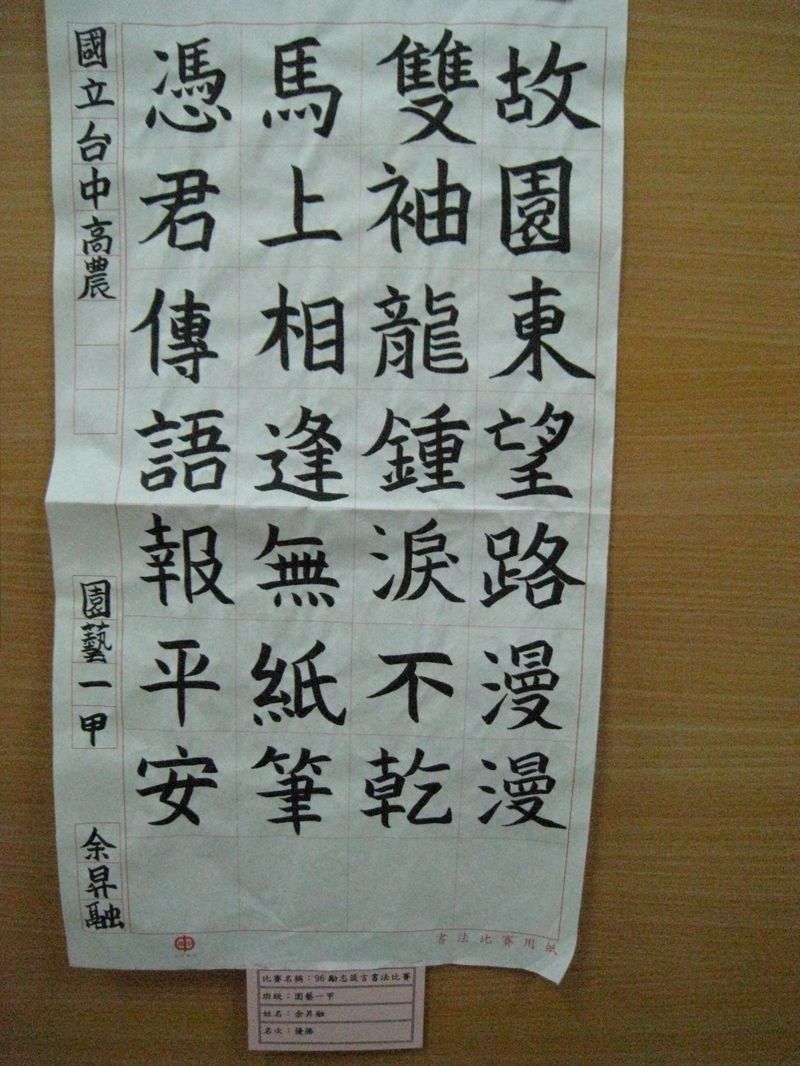 故園東望路漫漫
雙袖龍鍾淚不乾
馬上相逢無紙筆
憑君傳語報平安
國立台中高農 園藝一甲 余昇融
書法比賽用紙
比賽名稱：96勵志箴言書法比賽
班級：園藝一甲
姓名：余昇融
名次：優勝